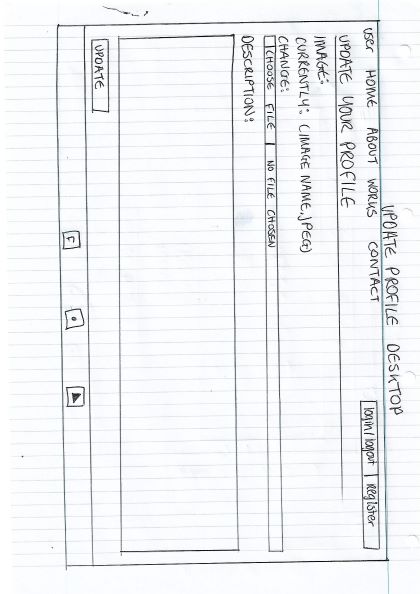 UPDATE PROFILE DESKTOP
user HOME ABOUT WORKS CONTACT login/logout Register
UPDATE YOUR PROFILE
IMAGE:
CURRENTLY: (IMAGE NAME.JPEG)
CHANGE:
CHOOSE FILE NO FILE CHOSEN
DESCRIPTION:
UPDATE
F